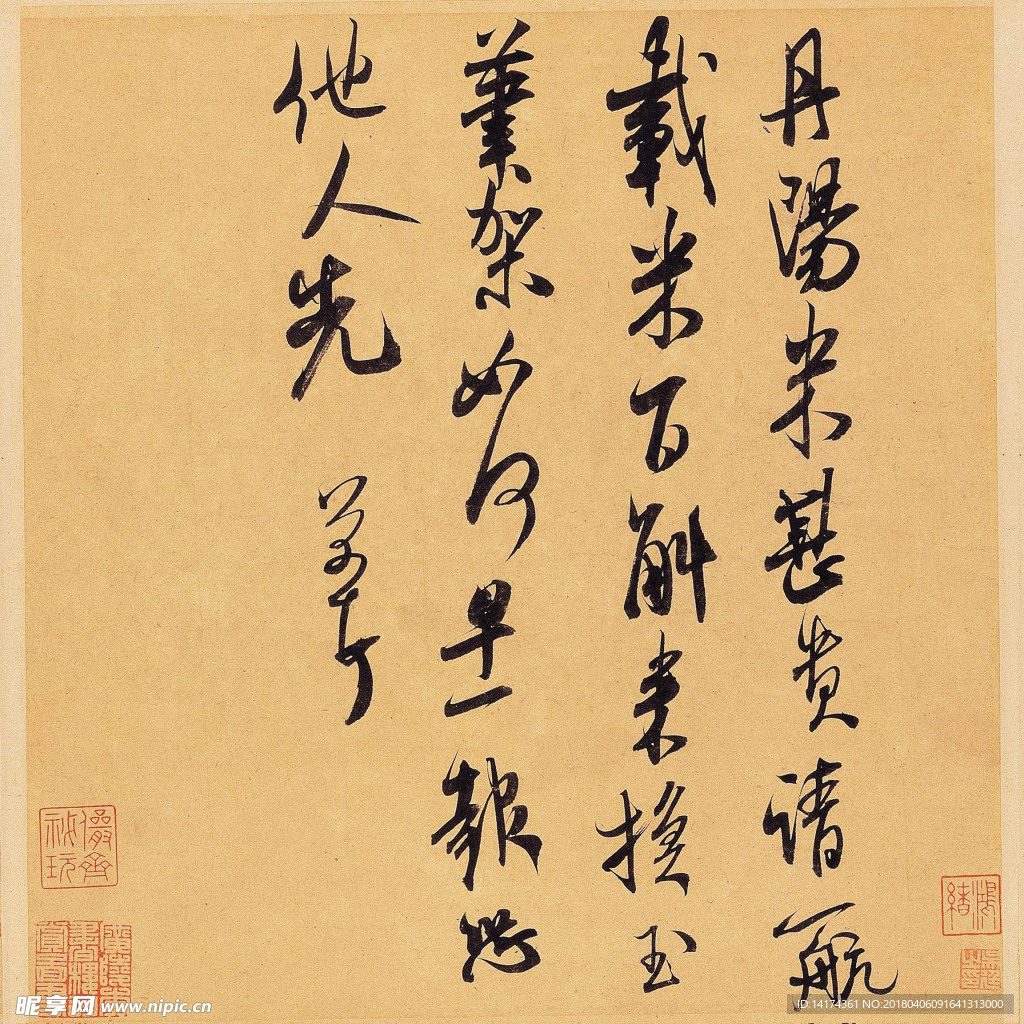 丹陽米甚貴請一航
載米百斛來換玉
筆架如何早一報恐
他人先
芾
鴻緒
儼齋秘玩
昵享网 www.nipic.cn
ID:14174361 NO:20180406091641313000